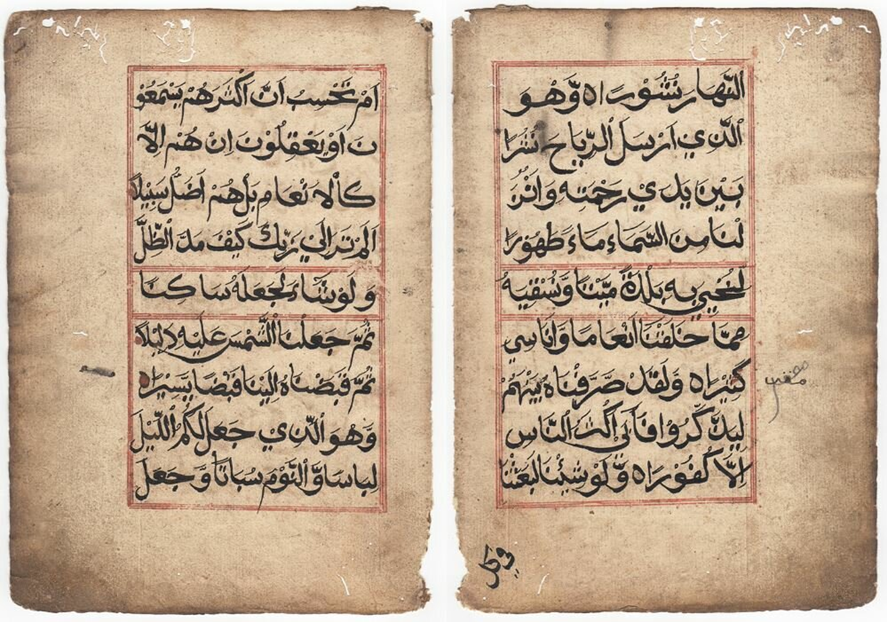 اَمْ تَحْسِبُ اَنَّ اَكْثَرَهُمْ يَسْمَعُوْ
نَ اَوْ يَعْقِلُوْنَ اِنْ هُمْ اِلَّا
كَالْاَنْعَامِ بَلْ هُمْ اَضَلُّ سَبِيْلًا
اَلَمْ تَرَ اِلٰي رَبِّكَ كَيْفَ مَدَّ الظِّلَّ
وَلَوْ شَاءَ لَجَعَلَهُ سَاكِنًا
ثُمَّ جَعَلْنَا الشَّمْسَ عَلَيْهِ دَلِيْلًا
ثُمَّ قَبَضْنَاهُ اِلَيْنَا قَبْضًا يَسِيْرًا ه
وَّهُوَ الَّذِيْ جَعَلَ لَكُمُ اللَّيْلَ
لِبَاسًا وَّالنَّوْمَ سُبَاتًا وَّجَعَلَ
النَّهَارَ نُشُوْرًا ه وَّهُوَ
الَّذِيْ اَرْسَلَ الرِّيَاحَ نُشْرًا
بَيْنَ يَدَيْ رَحْمَتِهِ وَاَنْزَ
لْنَا مِنَ السَّمَاءِ مَاءً طَهُوْرًا
لِنُحْيِيَ بِهِ بَلْدَةً مَّيْتًا وَّنُسْقِيَهُ
مِمَّا خَلَقْنَا اَنْعَامًا وَّاَنَاسِيَ
كَثِيْرًا ه وَلَقَدْ صَرَّفْنَاهُ بَيْنَهُمْ
لِيَذَّكَّرُوْا فَاَبٰى اَكْثَرُ النَّاسِ
اِلَّا كُفُوْرًا ه وَّلَوْ شِئْنَا لَبَعَثْنَا
في كل